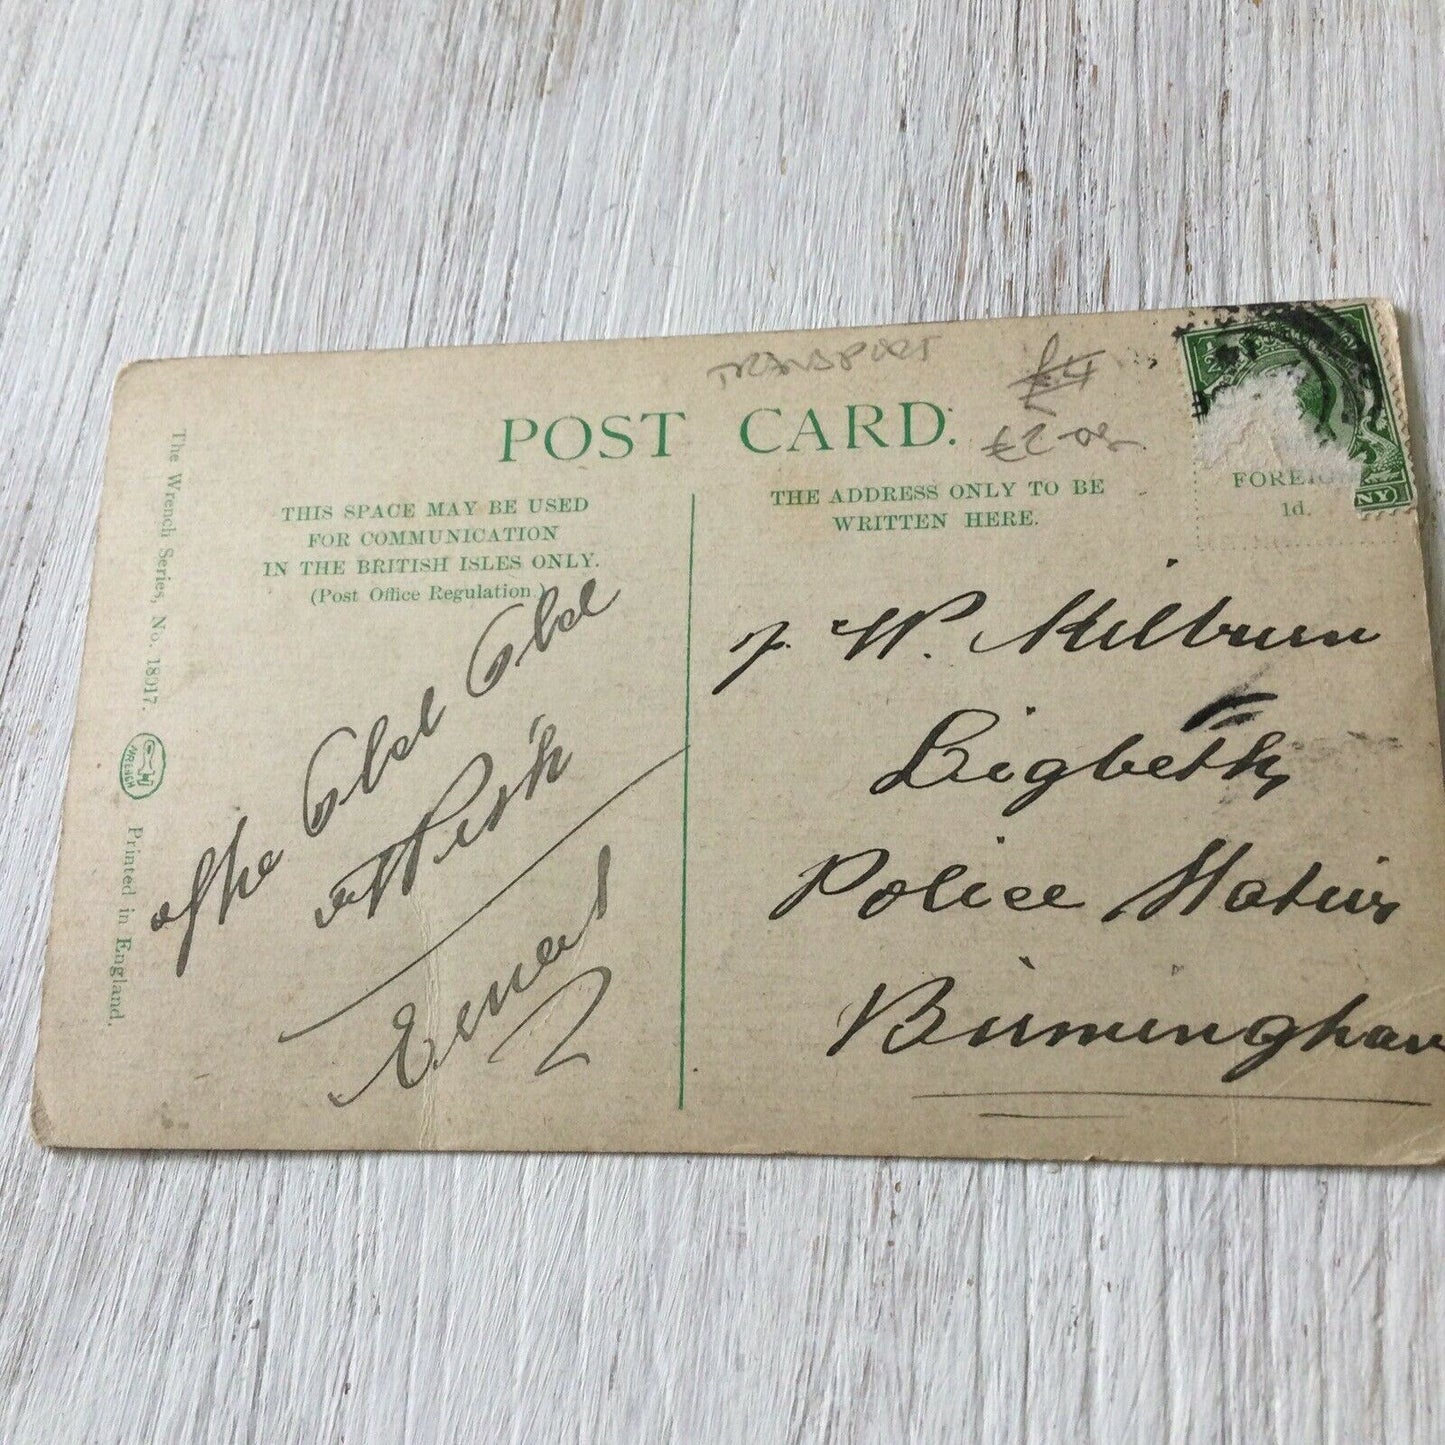 TRANSPORT
£4
£2-00
POST CARD.
THIS SPACE MAY BE USED
FOR COMMUNICATION
IN THE BRITISH ISLES ONLY.
(Post Office Regulation.)
THE ADDRESS ONLY TO BE
WRITTEN HERE.
FOREIGN
1d.
NY
The Wrench Series, No. 18017.
WRENCH
Printed in England.
The Old Old
Wish
Ernest
W. Milburn
Digbeth
Police Station
Birmingham